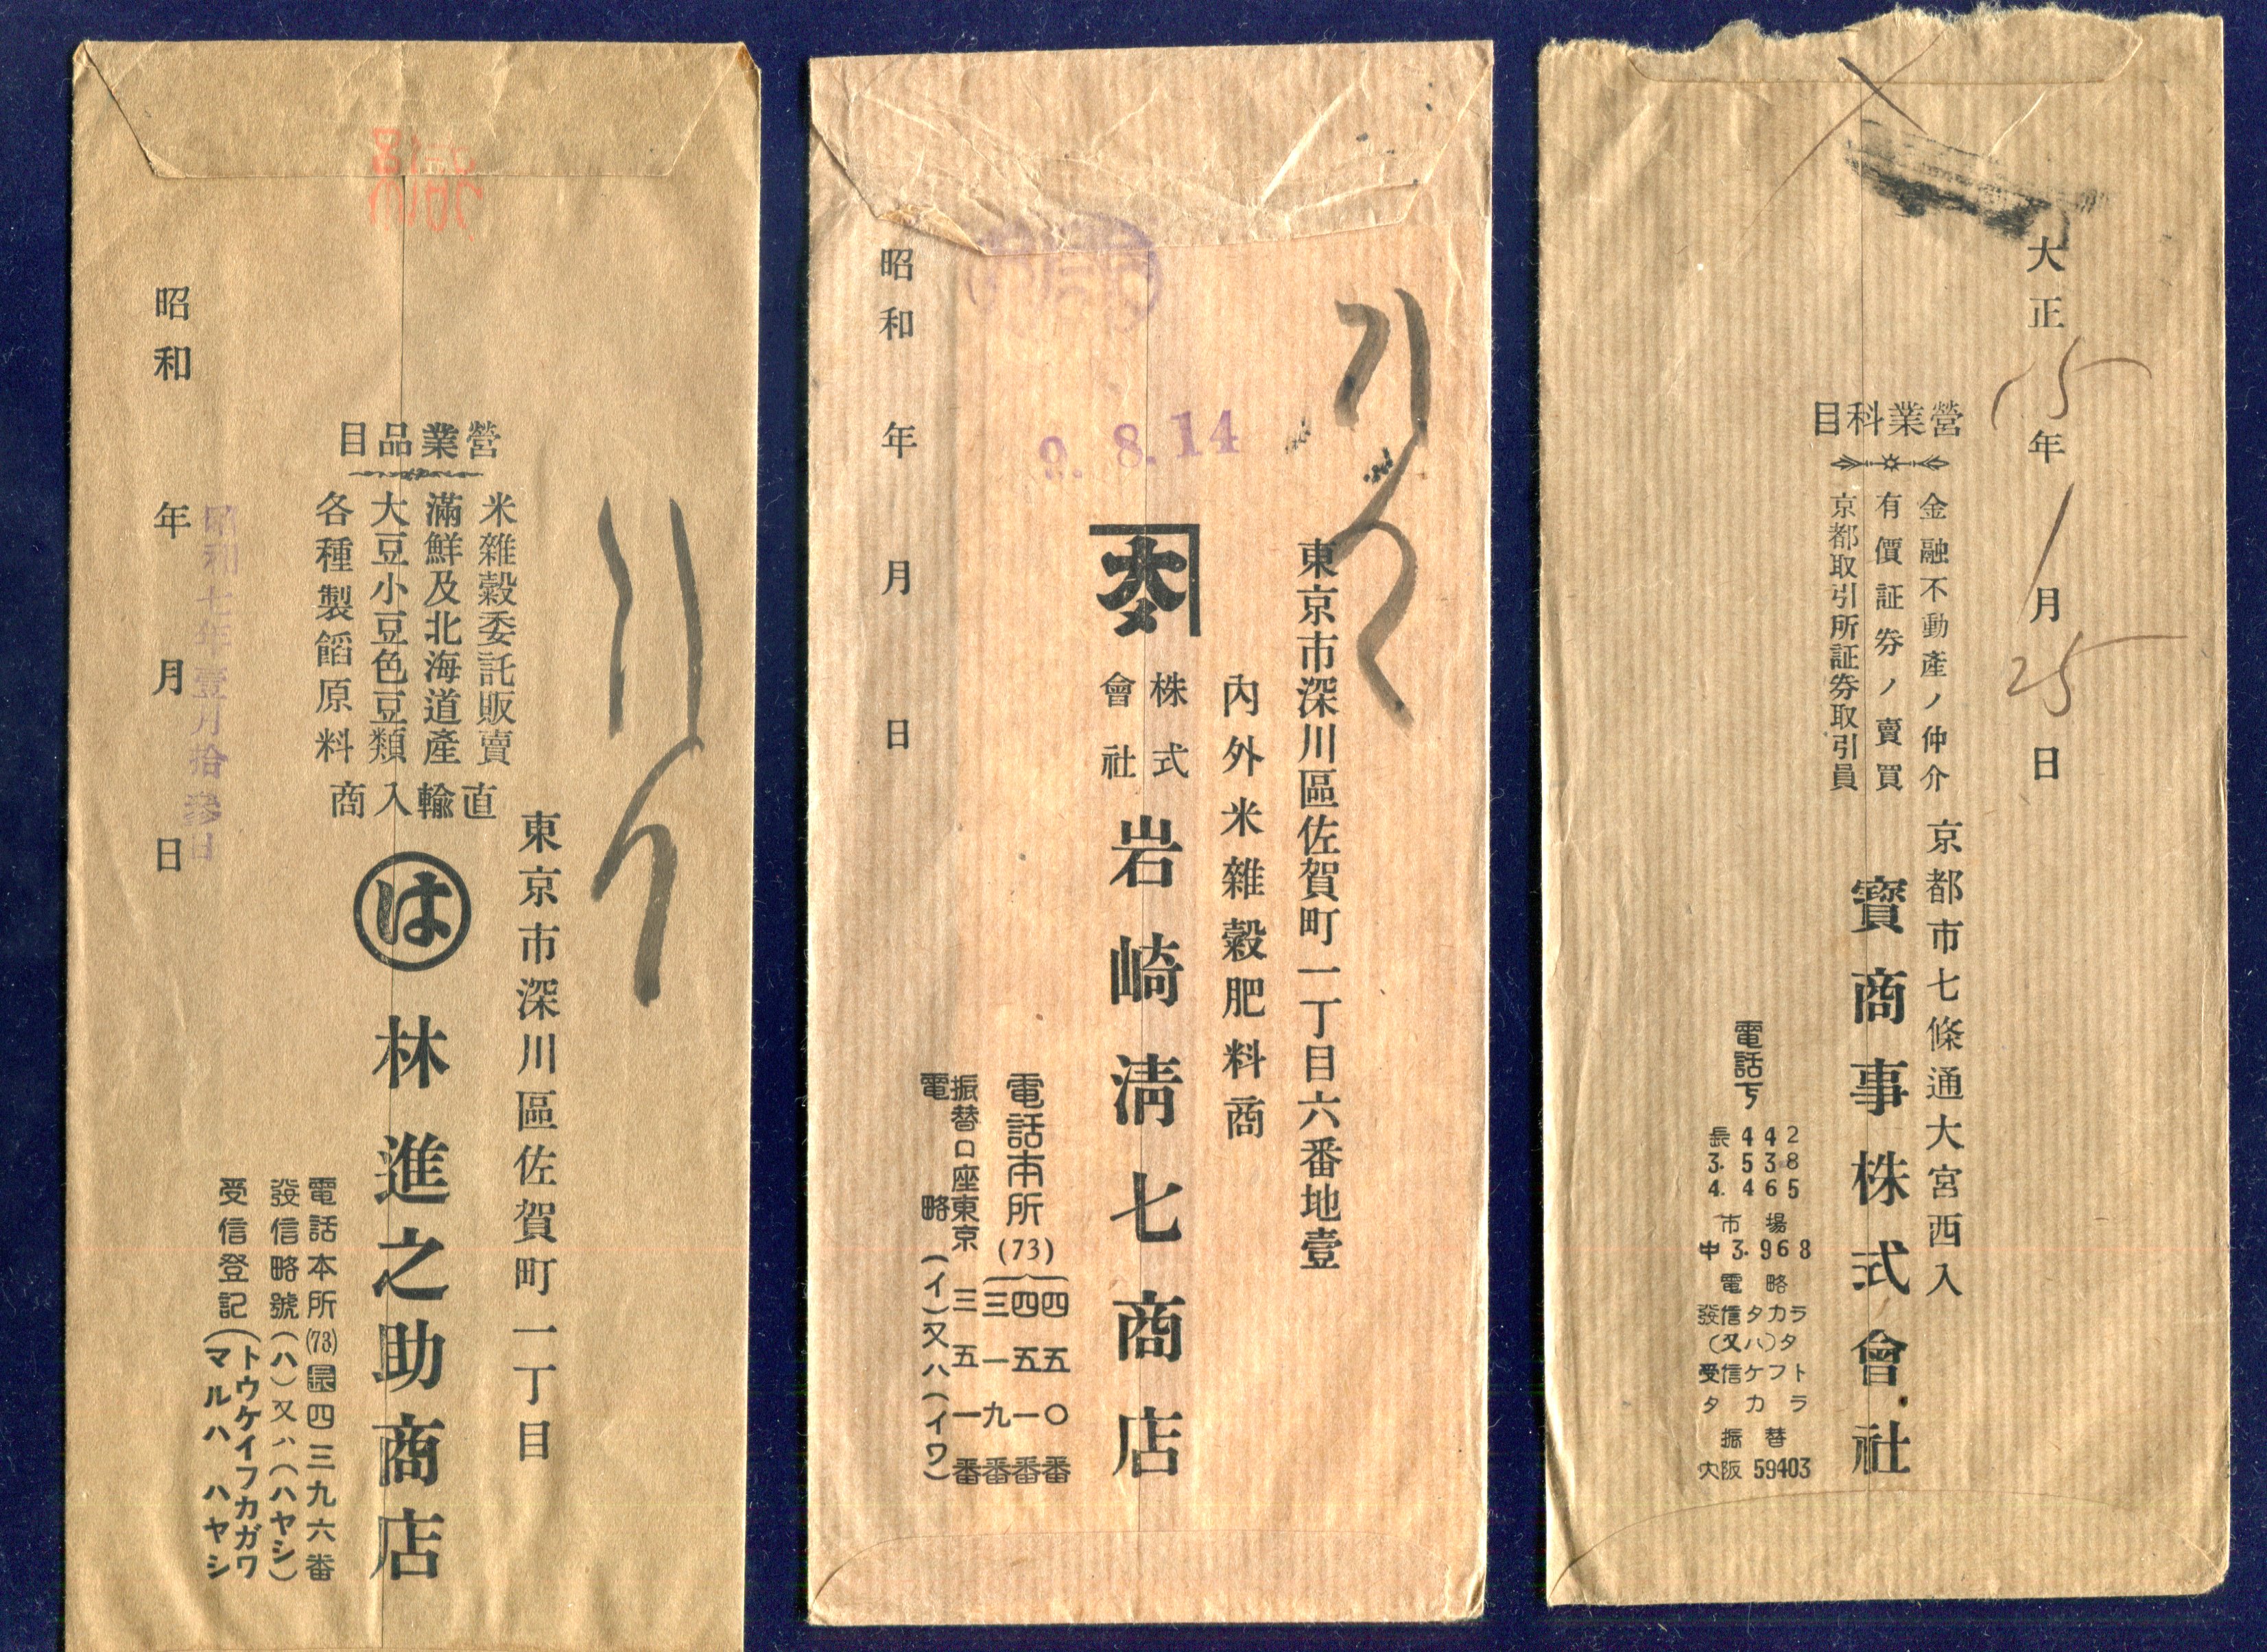 東京市深川區佐賀町一丁目
營業品目
米雜穀委託販賣
滿鮮及北海道產
大豆小豆色豆類
各種製餡原料
直輸入商
は
林進之助商店
電話本所(73)長四三九六番
發信略號(ハ)又ハ(ハヤシ)
受信登記(トウケイフカガワ
マルハ ハヤシ
昭和 年 月 日
昭和七年壹月拾參日
東京市深川區佐賀町一丁目六番地壹
內外米雜穀肥料商
株式會社 岩崎淸七商店
電話本所(73)
四五〇番
四五一番
三一九番
振替口座東京三五一番
電略(イ)又ハ(イワ)
9. 8. 14
昭和 年 月 日
大正15年1月25日
營業科目
金融不動產ノ仲介
有價証券ノ賣買
京都取引所証券取引員
京都市七條通大宮西入
寳商事株式會社
電話下
長442
3.538
4.465
市場
中3.968
電略
發信タカラ
(又ハ)タ
受信ケフト
タカラ
振替
大阪59403